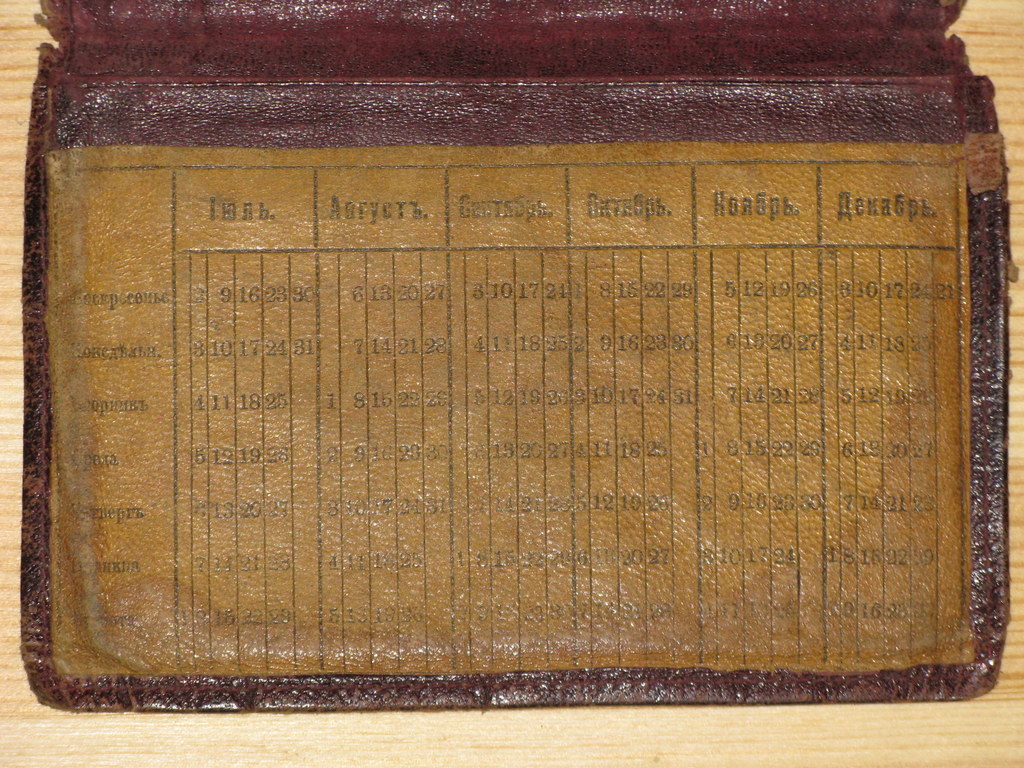 Іюль. Августъ. Сентябрь. Октябрь. Ноябрь. Декабрь.
Воскресенье 2 9 16 23 30 6 13 20 27 3 10 17 24 1 8 15 22 29 5 12 19 26 3 10 17 24 31
Понедѣльн. 3 10 17 24 31 7 14 21 28 4 11 18 25 2 9 16 23 30 6 13 20 27 4 11 18 25
Вторникъ 4 11 18 25 1 8 15 22 29 5 12 19 26 3 10 17 24 31 7 14 21 28 5 12 19 26
Среда 5 12 19 26 2 9 16 23 30 6 13 20 27 4 11 18 25 1 8 15 22 29 6 13 20 27
Четвергъ 6 13 20 27 3 10 17 24 31 7 14 21 28 5 12 19 26 2 9 16 23 30 7 14 21 28
Пятница 7 14 21 28 4 11 18 25 1 8 15 22 29 6 13 20 27 3 10 17 24 1 8 15 22 29
Суббота 1 8 15 22 29 5 12 19 26 9 16 23 14 21 28 4 11 9 16 23